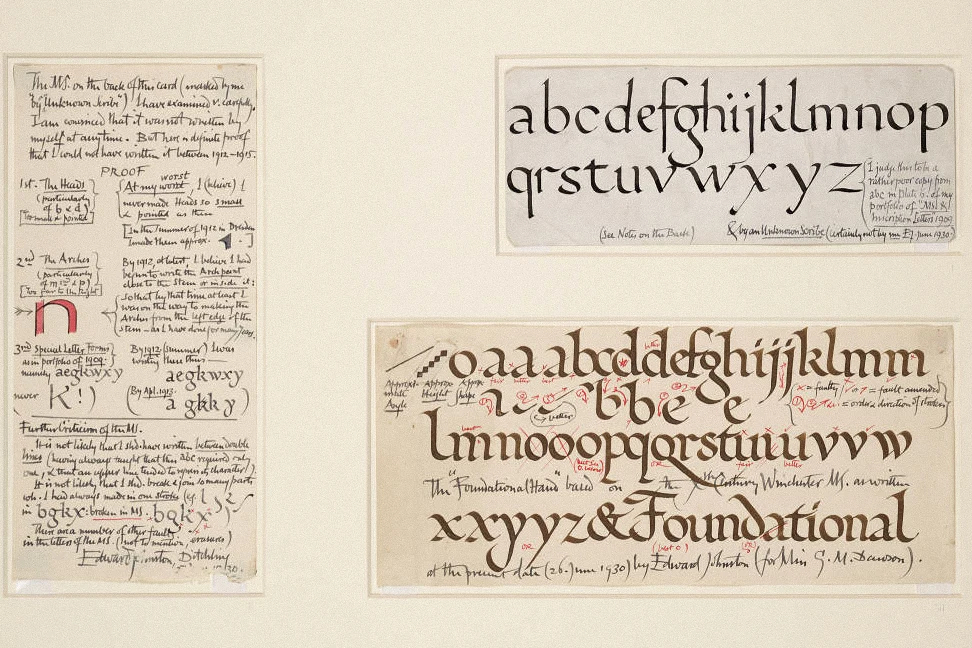 The MS. on the back of this card (marked by me
"by Unknown Scribe") I have examined v. carefully.
I am convinced that it was not written by
myself at any time. But here is definite proof
that I would not have written it between 1912–1915.
PROOF
1st. The Heads
(particularly
of b & d)
Too small & pointed
worst
At my worst, I (believe) I
never made Heads so small
& pointed as these
[In the Summer of 1912 in Dresden
I made them approx.
2nd The Arches
(particularly
of m & p)
Too far to the right
n
By 1912, at latest, I believe I had
begun to write the Arch point
close to the Stem or inside it:
so that by that time at least I
was on the way to making the
Arches from the left edge of the
Stem – as I have done for many years.
3rd Special Letter Forms
as in portfolio of 1909:
namely aegkwxy
never K!)
By 1912 (summer) I was
writing these thus
aegkwxy
(By Apl. 1913:
a gkk y)
Further Criticism of the MS.
It is not likely that I shd. have written between double
lines (having always taught that this abc required only
one, & that an upper line tended to repress its character).
It is not likely that I shd. break & join so many parts
wh. I had always made in one stroke (eg. l
in bgkx: broken in MS. bgkx)
There are a number of other faults
in the letters of the MS. (not to mention erasures)
Edward Johnston, Ditchling
abcdefghijklmnop
qrstuvwxyz
I judge this to be a
rather poor copy from
abc in Plate 6. of my
portfolio of "MS. &
Inscription Letters 1909
(See Notes on the Back)
& by an Unknown Scribe (certainly not by me EJ. June 1930)
oaaabcddefghijjklmm
Approx:
Angle
Approx:
Height
Approx:
shape
a bb e e
better
x = faulty = fault amended
= order & direction of strokes
lmnooopqqrstuuuvvw
The "Foundational Hand" based on the Xth Century Winchester MS. as written
xxyyz&Foundational
at the present date (26. June 1930) by Edward Johnston (for Miss G. M. Dawson).